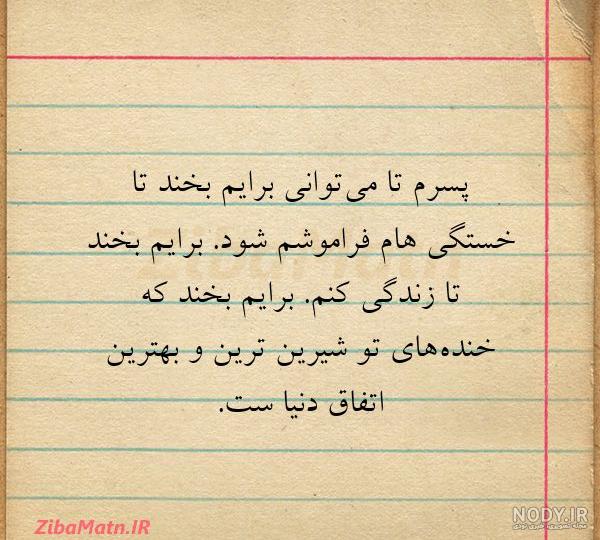 پسرم تا می‌توانی برایم بخند تا
خستگی هام فراموشم شود. برایم بخند
تا زندگی کنم. برایم بخند که
خنده‌های تو شیرین ترین و بهترین
اتفاق دنیا ست.
ZibaMatn.IR
NODY.IR